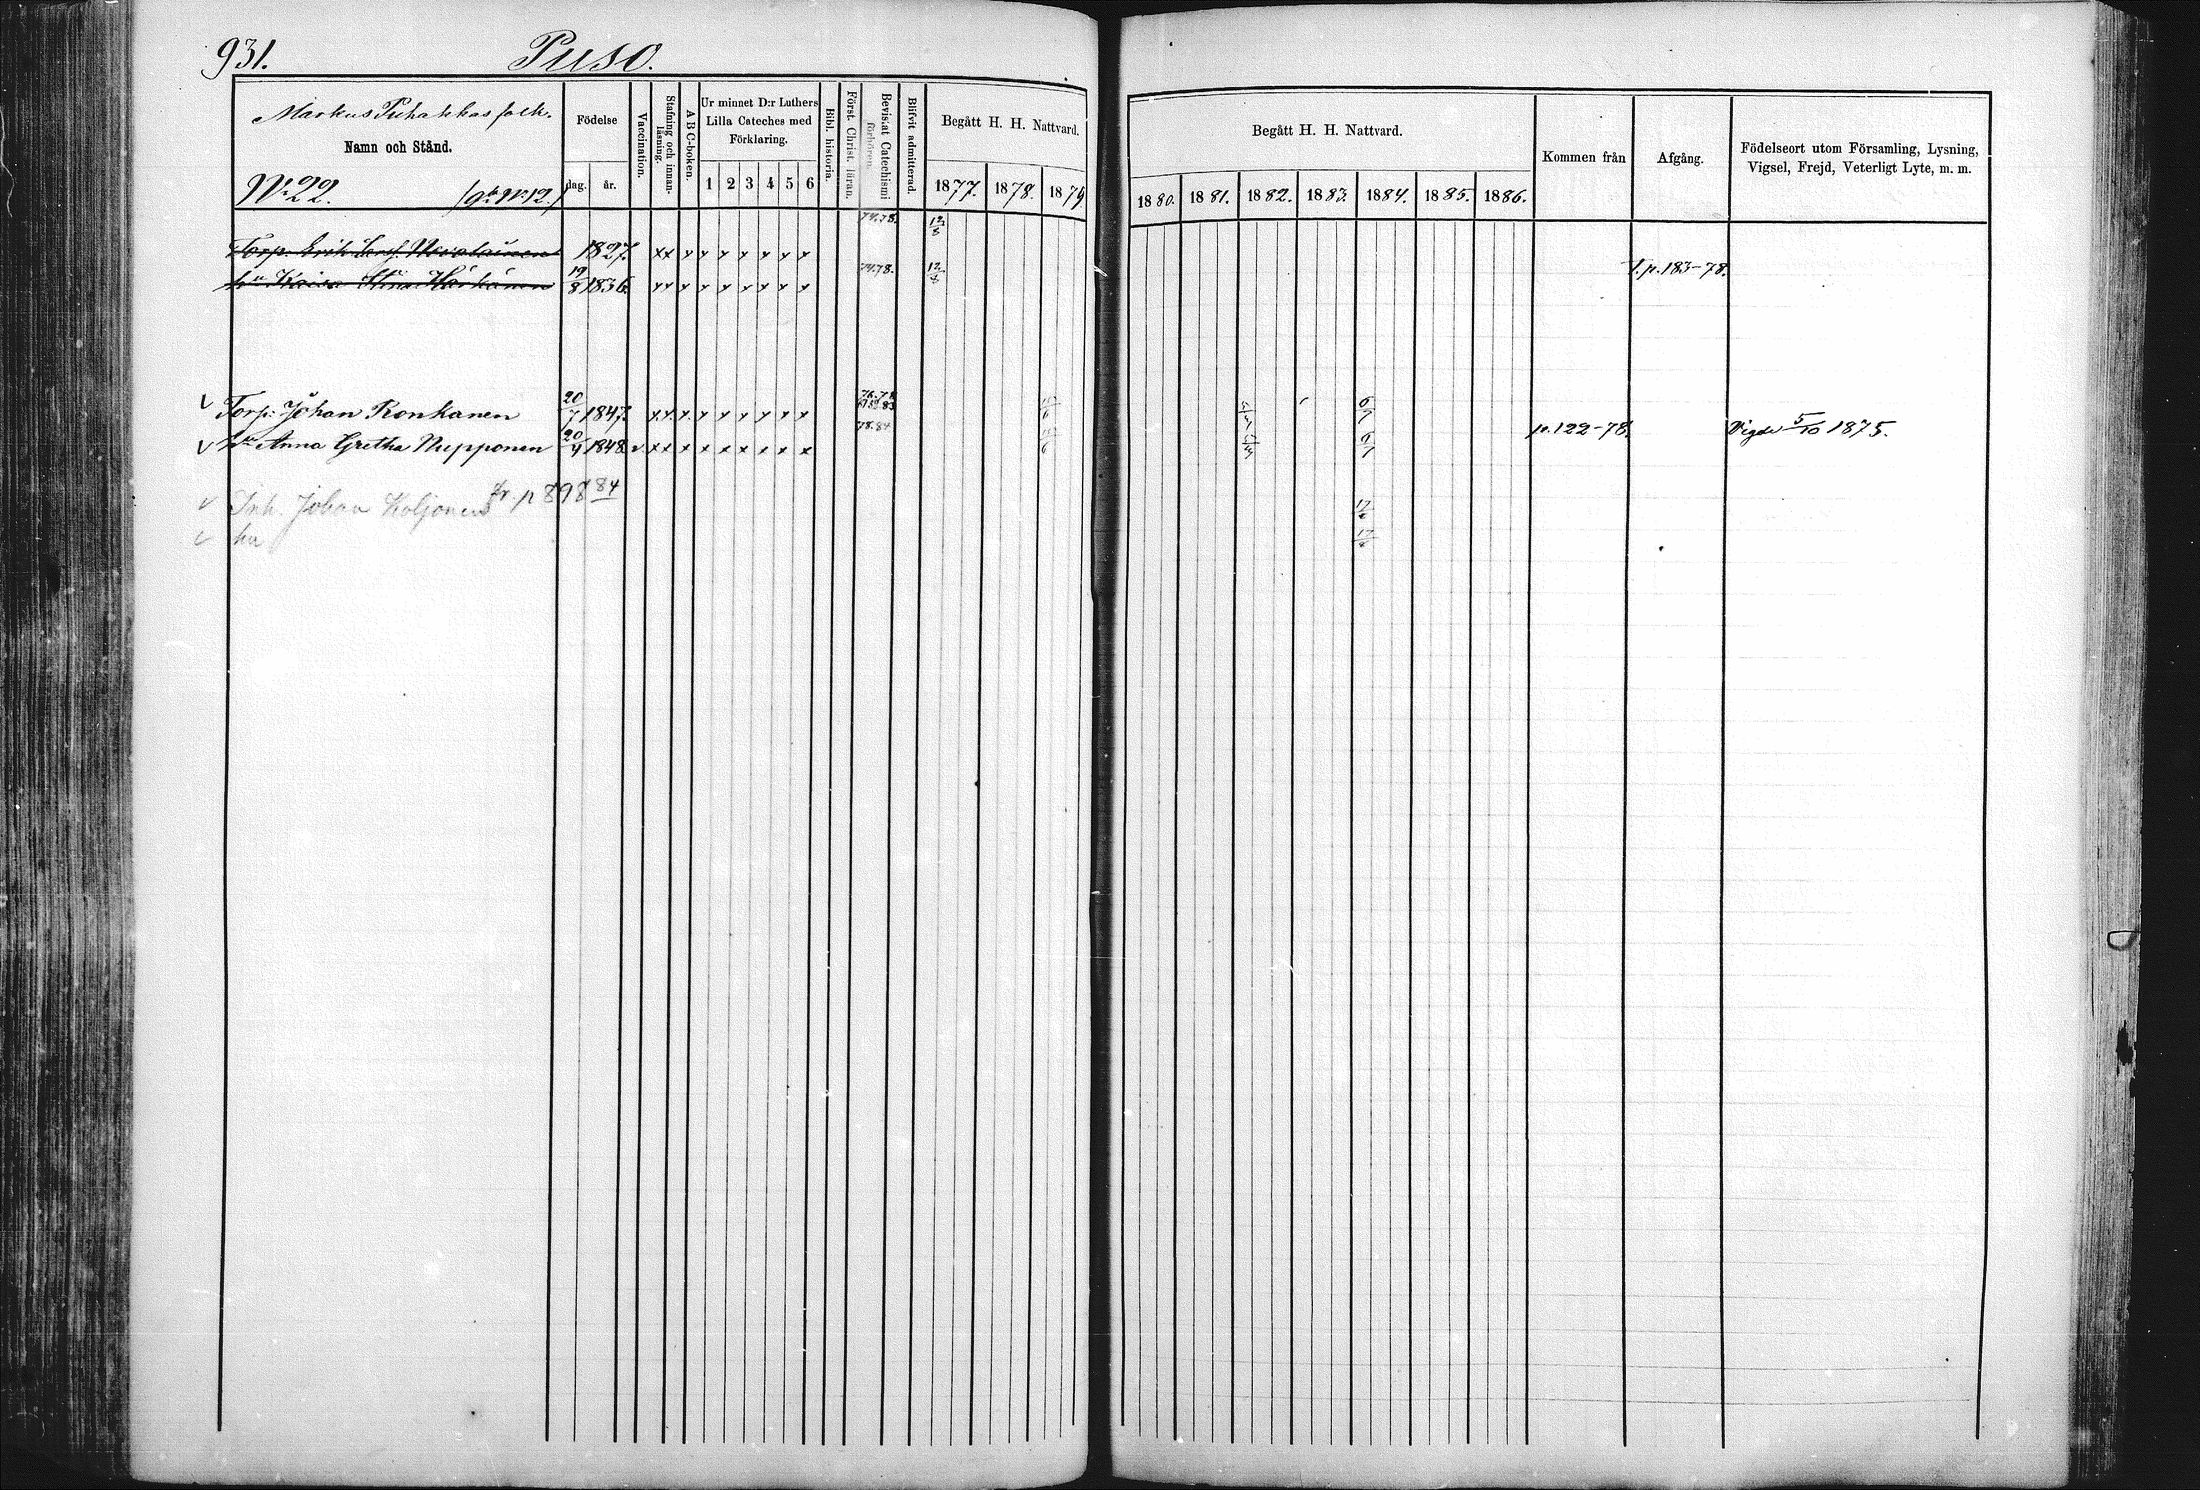 931.
Puso.
Markus Puhakkas folk.
Namn och Stånd.
No 22.
Födelse
dag. år.
Vaccination.
Stafning och innan-läsning.
A B C-boken.
Ur minnet D:r Luthers
Lilla Cateches med
Förklaring.
1 2 3 4 5 6
Bibl. historia.
Först. Christ. läran.
Bevistat Catechismi förhören.
Blifvit admitterad.
Begått H. H. Nattvard.
1877. 1878. 1879.
Begått H. H. Nattvard.
1880. 1881. 1882. 1883. 1884. 1885. 1886.
Kommen från
Afgång.
Födelseort utom Församling, Lysning,
Vigsel, Frejd, Veterligt Lyte, m. m.
77.78. 12/8
Torp. Erik 1827. x x x x x x x x x
hu Kaisa Stina 19/8 1836. 77.78. x x x x x x x x x
l. p. 183-78.
Torp. Johan Ronkanen 20/7 1847. x x x x x x x x x 6/7
hu Anna Gretha Nupponen 20/4 1848 v x x x x x x x x x 78.84 6/7 p. 122-78. Vigde 5/10 1875.
Inh. Johan Koljonen fr. p 898 84
hu